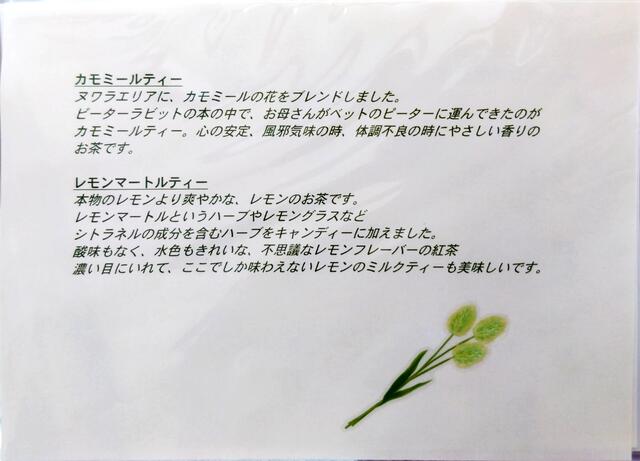 カモミールティー
ヌワラエリアに、カモミールの花をブレンドしました。
ピーターラビットの本の中で、お母さんがベットのピーターに運んできたのが
カモミールティー。心の安定、風邪気味の時、体調不良の時にやさしい香りの
お茶です。
レモンマートルティー
本物のレモンより爽やかな、レモンのお茶です。
レモンマートルというハーブやレモングラスなど
シトラネルの成分を含むハーブをキャンディーに加えました。
酸味もなく、水色もきれいな、不思議なレモンフレーバーの紅茶
濃い目にいれて、ここでしか味わえないレモンのミルクティーも美味しいです。